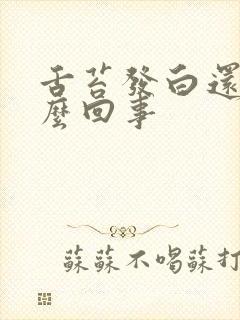 舌苔發白還
麼回事
蘇蘇不喝蘇打